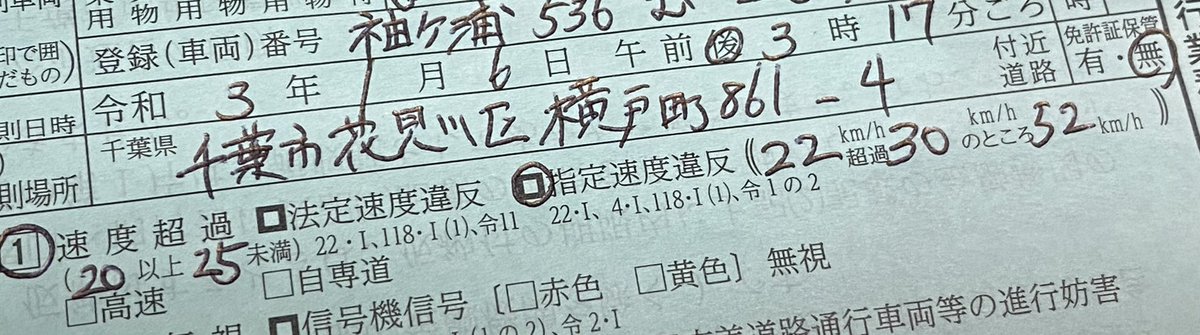 用物用物用物
登録(車両)番号 袖ケ浦 536
印で囲
だもの)
令和 3年 1月 6日 午前 後 3時 17分ごろ
則日時
付近
道路
免許証保管
有・無
則場所
千葉県 千葉市花見川区横戸町861-4
① 速度超過 法定速度違反 指定速度違反《22km/h超過30km/hのところ52km/h》
22・I、118・I(1)、令11 22・I、4・I、118・I(1)、令1の2
(20以上25未満)
□高速 □自専道
信号機信号 [□赤色 □黄色] 無視
(1の2)、令2・I
道路通行車両等の進行妨害